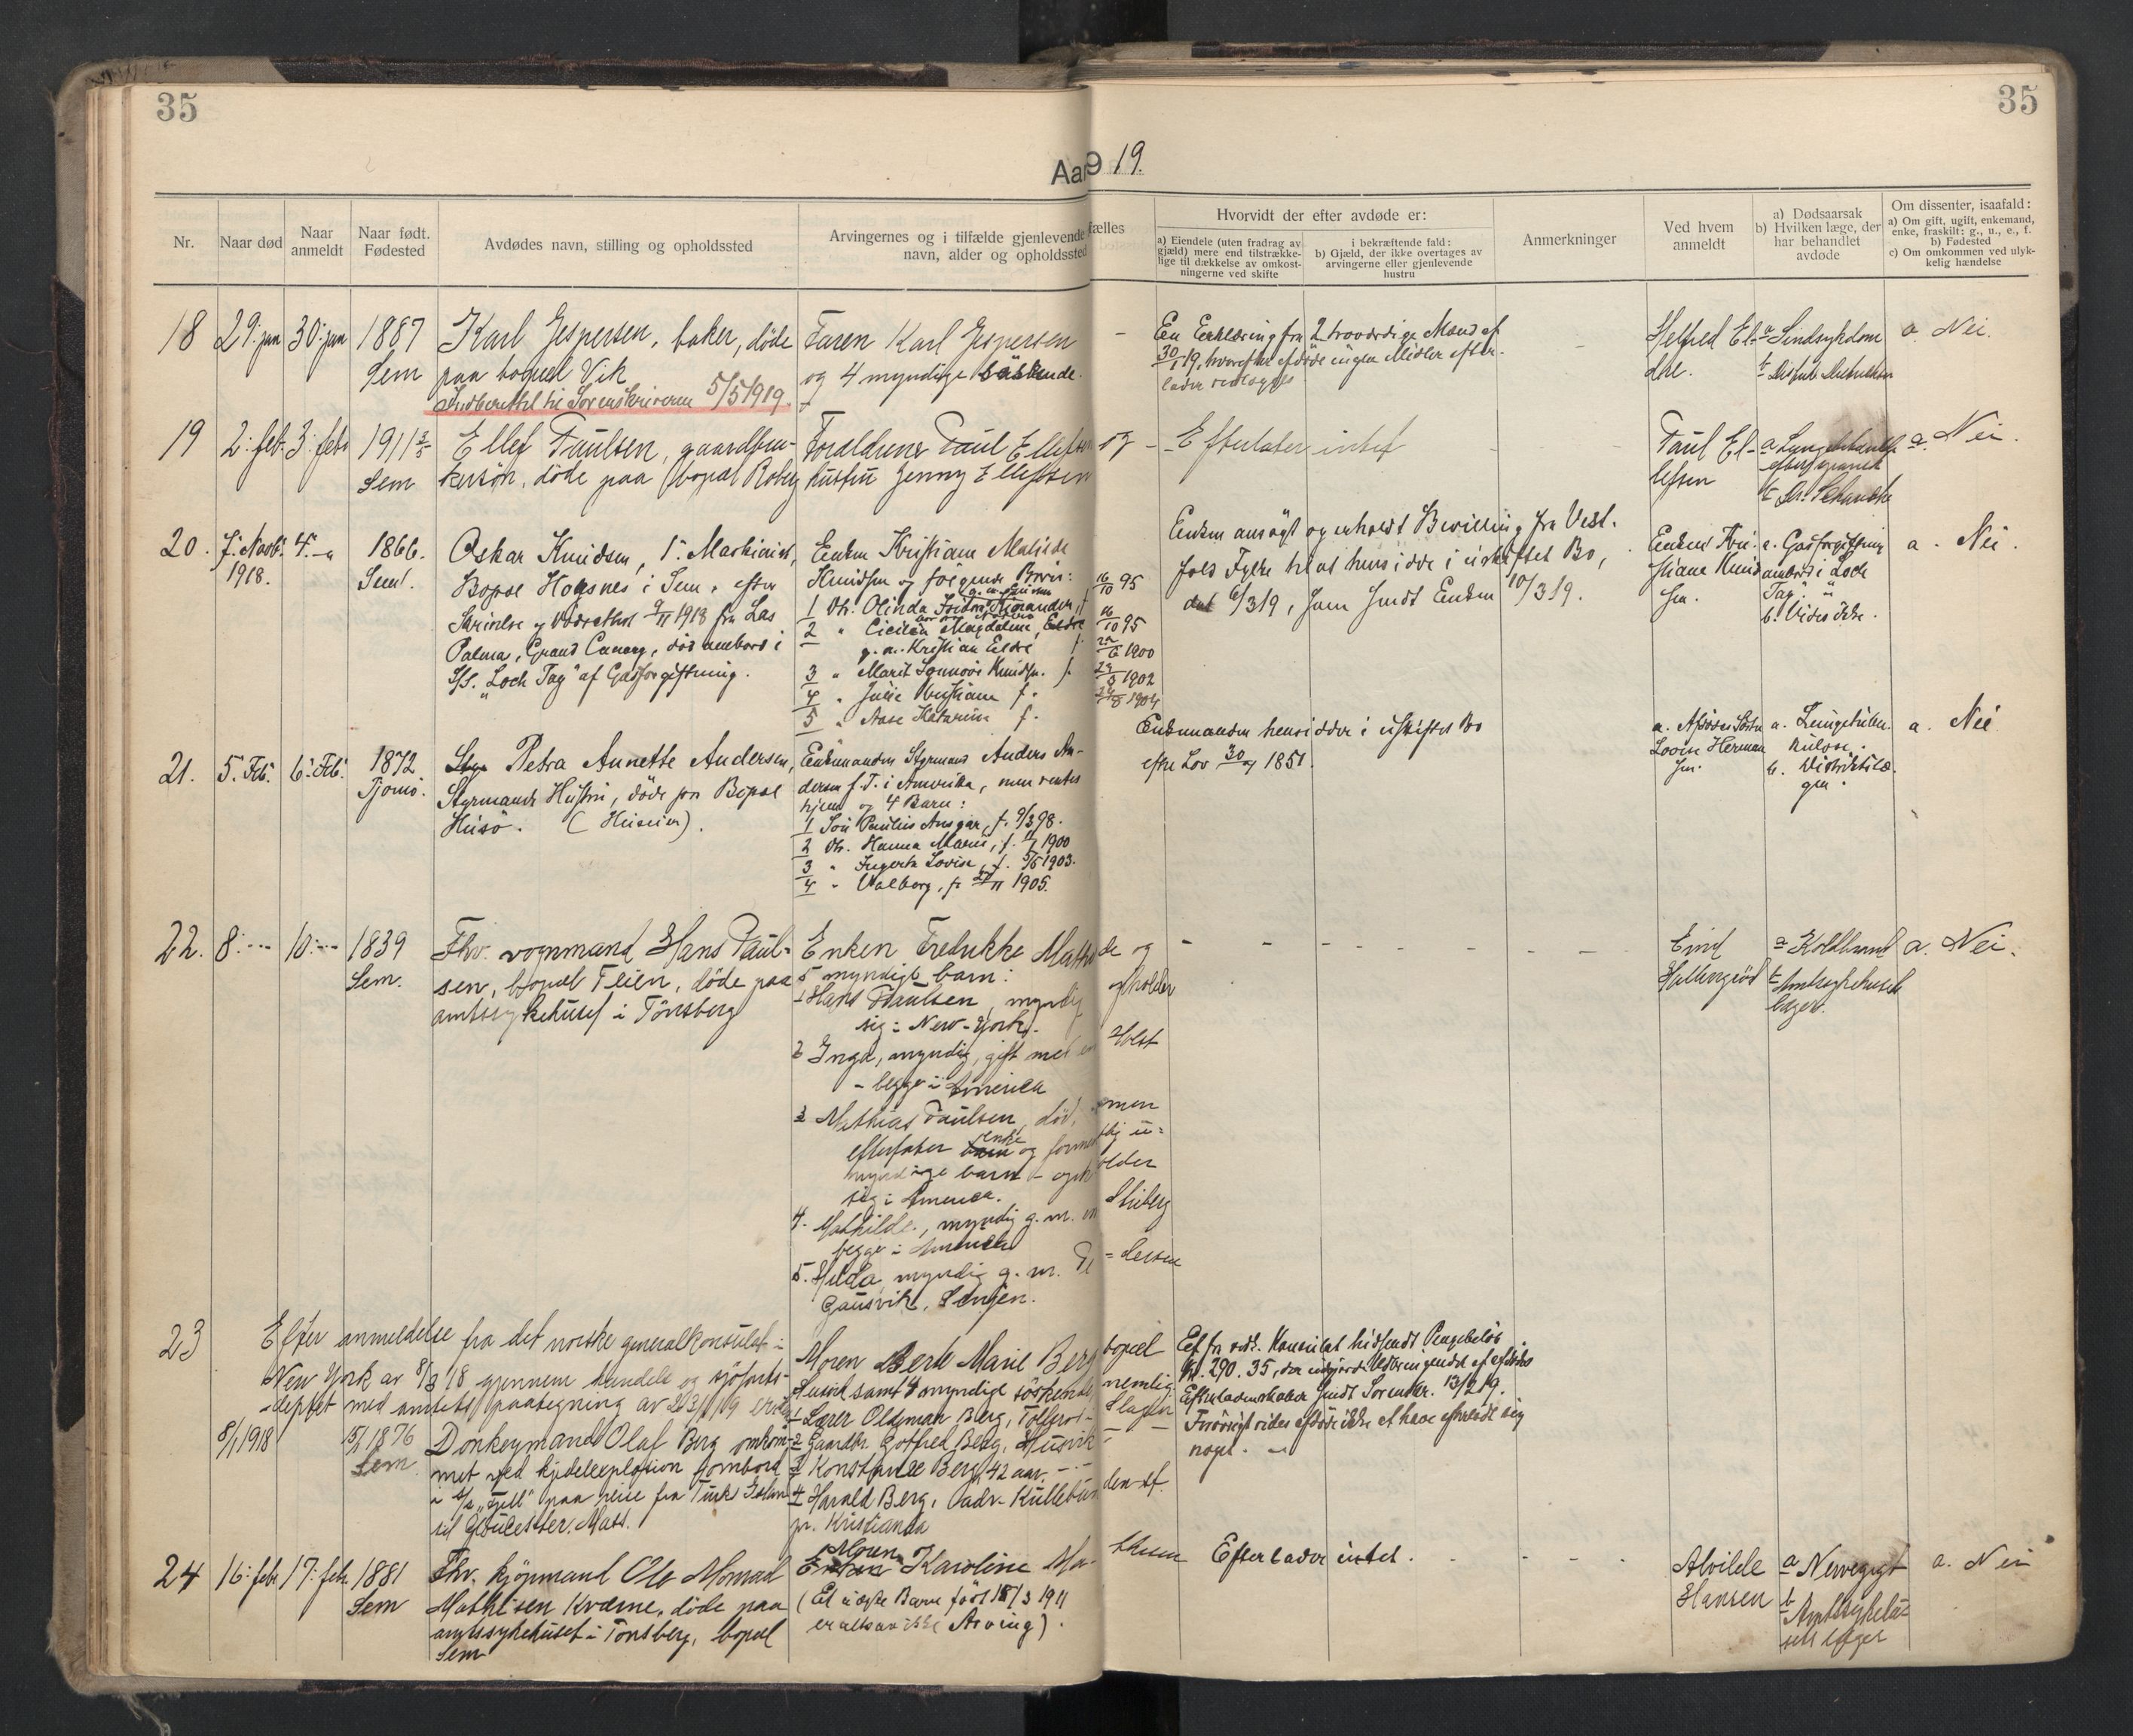 35
35
Aar 1919.
Nr.
Naar død
Naar anmeldt
Naar født. Fødested
Avdødes navn, stilling og opholdssted
Arvingernes og i tilfælde gjenlevende
navn, alder og opholdssted
fælles
Hvorvidt der efter avdøde er:
a) Eiendele (uten fradrag av
gjæld) mere end tilstrække-
lige til dækkelse av omkost-
ningerne ved skifte
i bekræftende fald:
b) Gjæld, der ikke overtages av
arvingerne eller gjenlevende
hustru
Anmerkninger
Ved hvem
anmeldt
a) Dødsaarsak
b) Hvilken læge, der
har behandlet
avdøde
Om dissenter, isaafald:
a) Om gift, ugift, enkemand,
enke, fraskilt: g., u., e., f.
b) Fødested
c) Om omkommen ved ulyk-
kelig hændelse
18 29. jan 30. jan 1887
Sem
Karl Jespersen, baker, døde
paa bopæl Vik
Indberettet til Sorenskriveren 5/5 1919.
Faren Karl Jespersen
og 4 myndige søskende.
En Erklæring fra 2 troværdige Mænd af
30/1 19, hvorefter afdøde ingen Midler efter-
lader vedlægges
Helfred El-
dre.
a Sindsykdom
a. Nei.
19 2. feb. 3. feb. 1911
Sem
Ellef Paulsen, gaardbru-
kersøn, døde paa bopæl Roberg
Forældrene Paul Ellefsen og
hustru Jenny Ellefsen
Efterlater intet
Paul El-
lefsen
a. Nei.
20. 7. Novb. 1918. 4.
1866.
Sem.
Oskar Knudsen, 1. Maskinist,
Bopæl Hogsnes i Sem, efter
Skrivelse af fra Las
Palma, Grand Canary, død ombord i
S/S. "Loch Tay" af Gasforgiftning.
Enken Kristiane Matilde
Knudsen og følgende Børn:
1 Dtr. Olinda
2 " Cicilie Magdalene, Eldre
g. m. Kristian Eldre
3 " Marit Sannøv Knudsen. f.
4 " Julie Kristiane f.
5 " Aase Katarina f.
16/10 95
16/10 95
1900
1902
1904
Enken ansøgt og erholdt Bevilling fra Vest-
fold Fylke til at hensidde i uskiftet Bo,
dat 6/3 19, som sendt Enken 10/3 19.
Enken Kri-
stiane Knud-
sen.
a. Gasforgiftning
ombord i Loch
Tay.
b. Vides ikke.
a. Nei.
21. 5. Feb. 6. Feb. 1872
Tjømø.
Petra Annette Andersen,
Styrmands Hustru, døde paa Bopæl
Husø. (Husvik).
Enkemanden Styrmand Anders An-
dersen f. T. i Amerika, men ventes
hjem og 4 Barn:
1 Søn Paulus Ansgar, f. 9/3 98.
2 Dtr. Hanna Marie, f. 1900
3 " Ingerta Lovise, f. 5/5 1903.
4 " Valborg, f. 1905.
Enkemanden hensidder i uskiftet Bo
efter Lov 30/7 1851.
a. Afdødes Søster
Lovise Herman-
sen.
a. Lungetuber-
kulose.
b. Distriktslæ-
gen.
a. Nei
22. 8. 10. 1839
Sem.
Fhv. vognmand Hans Paul-
sen, bopæl Teien, døde paa
amtssykehuset i Tønsberg
Enken Fredrikke Mathilde og
5 myndige barn:
1 Hans Paulsen, myndig opholder
sig i New-York.
2 Inga, myndig, gift med en Holst
- begge i Amerika
3 Mathias Paulsen, død, men
efterlater enke og formentlig u-
myndige barn - opholder
sig i Amerika.
4. Mathilde, myndig g. m. en Stiberg
begge i Amerika
5. Hilda myndig g. m. Pe-dersen
Gausvik, Senjen.
Einar
Hallengsød
a Koldbrand
b Amtssykehusets
læger.
a. Nei.
23 Efter anmeldelse fra det norske generalkonsulat i
New York av 8/3 18 gjennem handels og sjøfarts-
deptet med amtets paategning av
8/1 1918 1876
Sem
Donkeymand Olaf Berg omkom-
met ved kjedelexplosion ombord
i S/S "Fjell" paa reise fra Turks Islan
til Gloucester, Mass.
Moren Berte Marie Berg bopæl
Husvik samt 4 myndige søskende nemlig
1 Lærer Oldeman Berg, Tolfsrød Slagen
2 Gaardbr. Gotfred Berg, Husvik
3 Konstanse Berg, 42 aar.
4 Harald Berg, adr. Kullebunden st.
pr. Kristiania
Et fra vedk. Konsulat hidsendt Pengebeløb
Kr. 290.35, der udgjorde Nettoen af afdødes
Efterladenskaber sendt Sorenskr. 13/2 19.
Forøvrigt vides afdøde ikke at have efterladt sig
noget.
24 16. feb. 17. feb. 1881
Sem
Fhv. kjøpmand Ole Monrad
Mathisen Kværne, døde paa
amtssykehuset i Tønsberg, bopæl
Sem
Moren
Karoline Ma-thisen
(Et uægte Barn født 18/3 1911
er altsaa ikke Arving).
Efterlader intet.
Alvilde
Hansen
a Nervegigt
b Amtssykehu-
sets læger
a. Nei